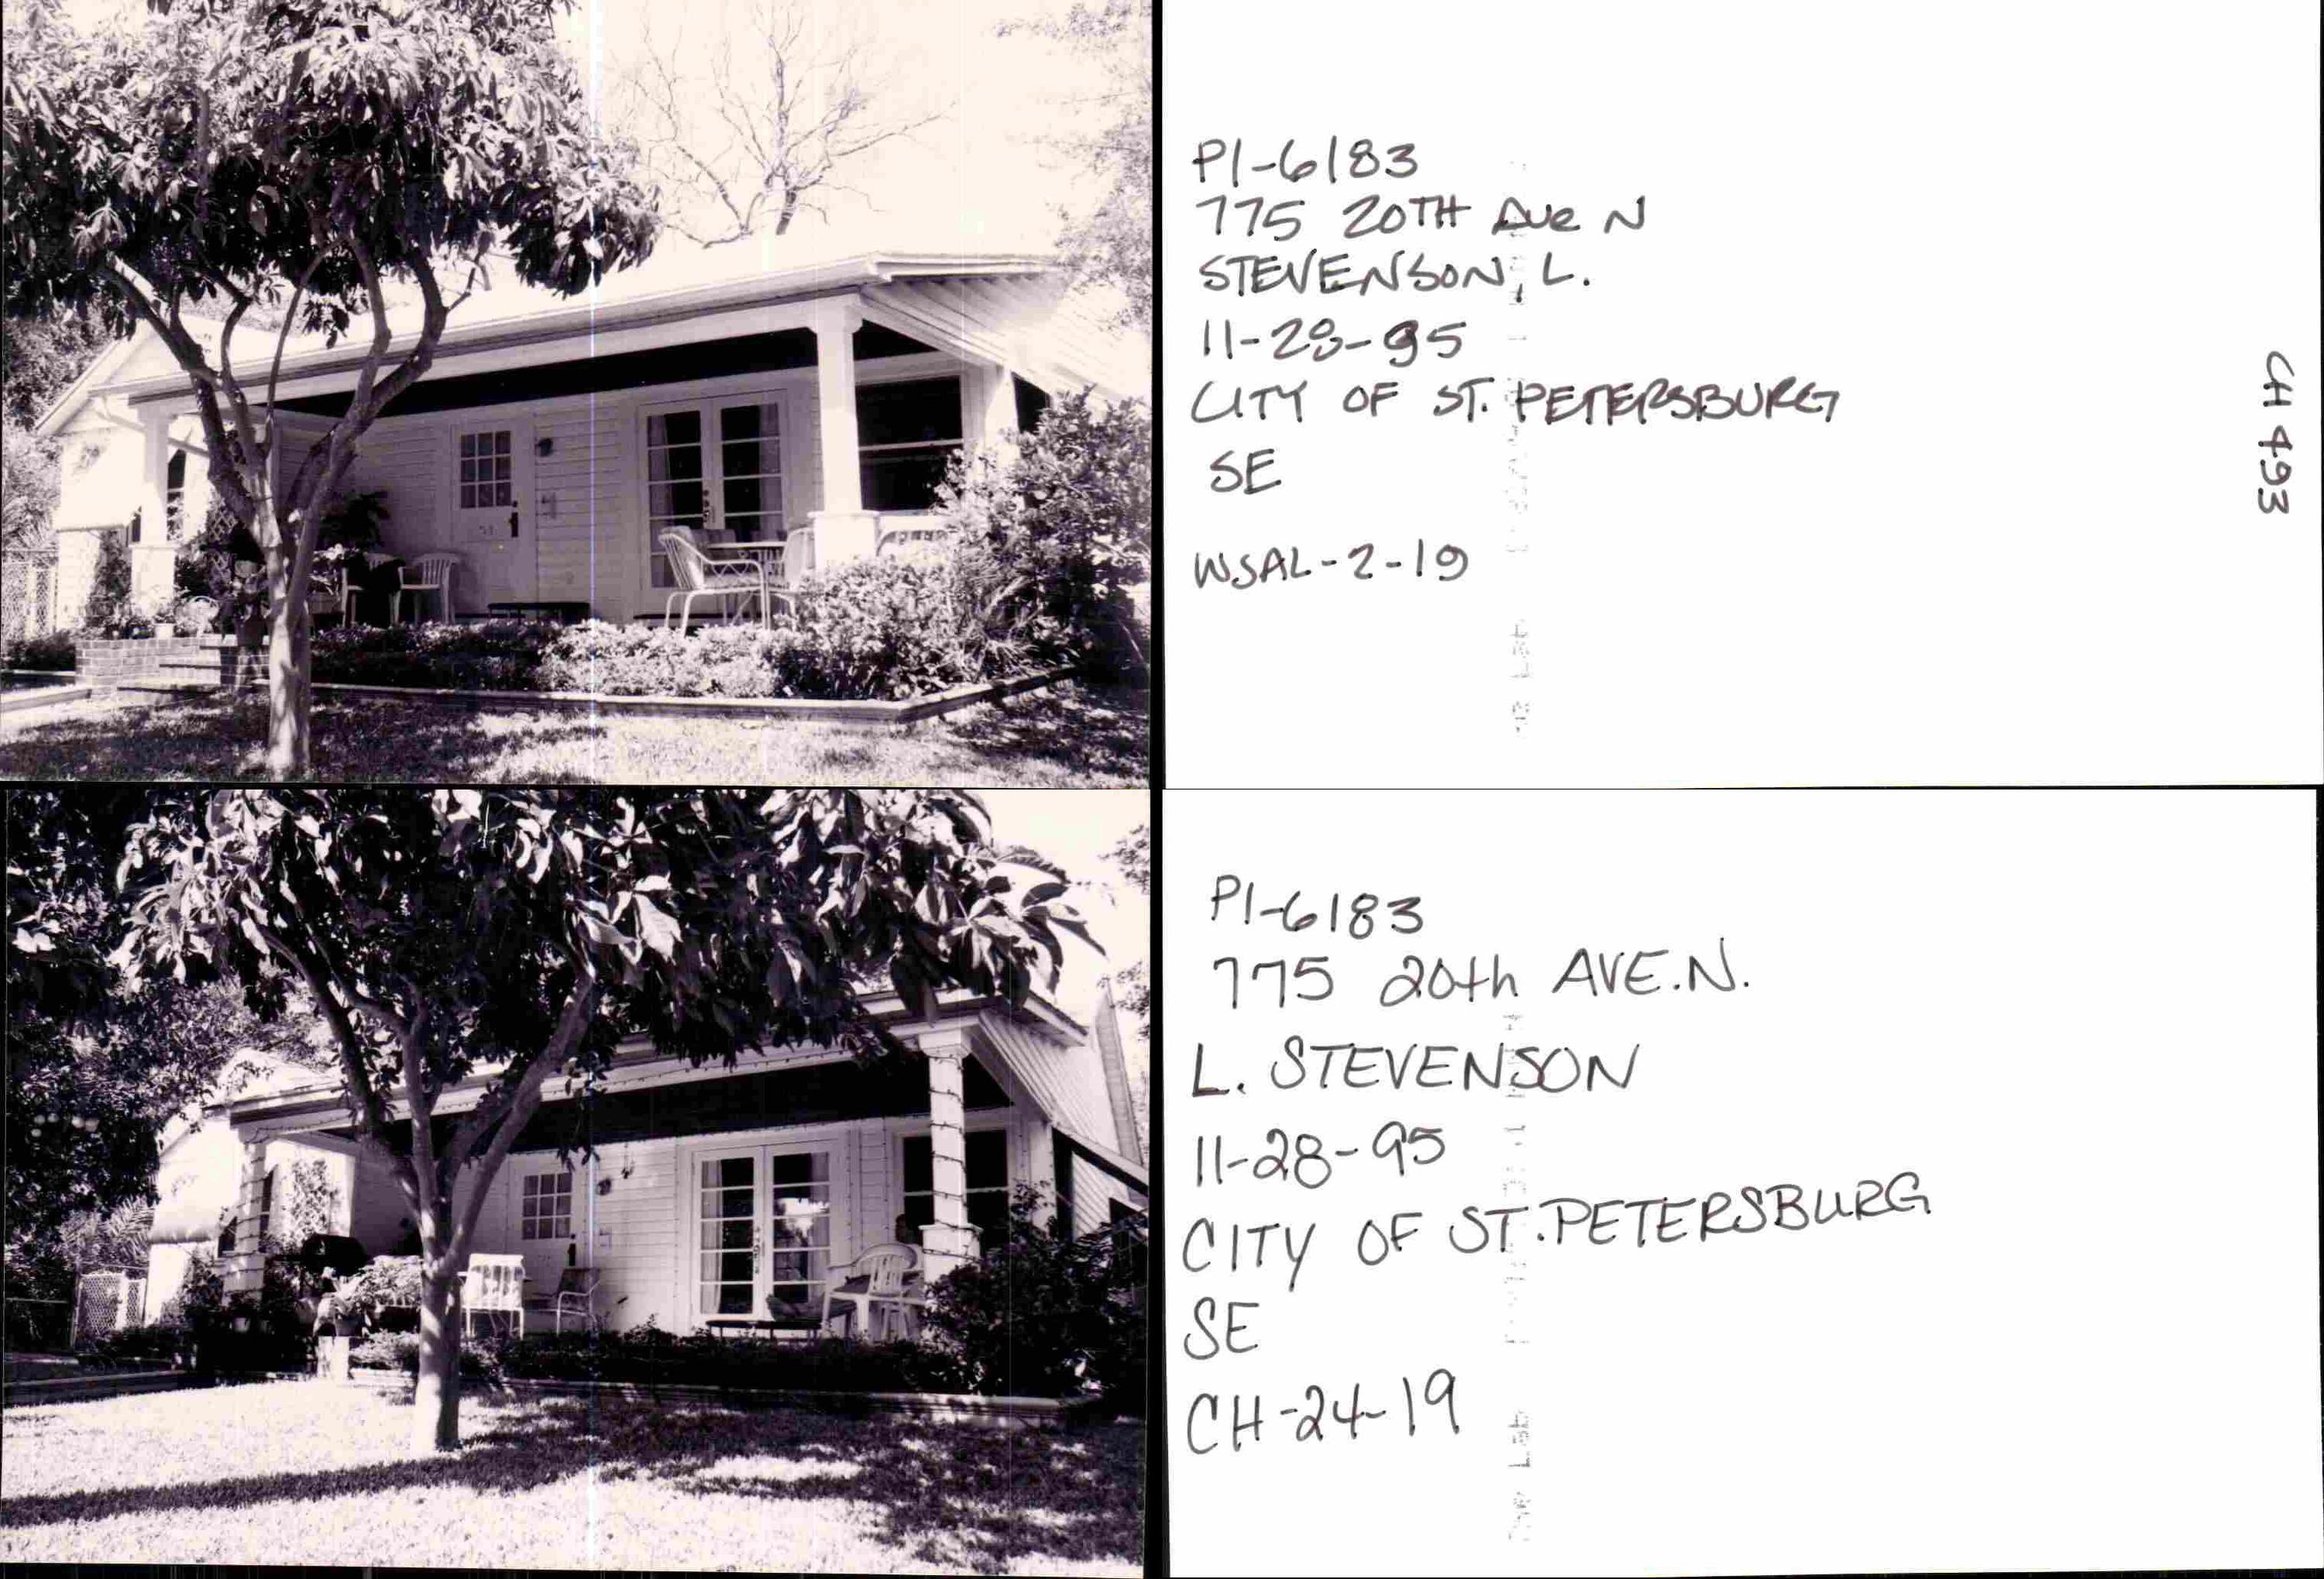 PI-6183
775 20TH Ave N
STEVENSON, L.
11-28-95
CITY OF ST. PETERSBURG
SE
WSAL-2-19
CH 493
PI-6183
775 20th AVE.N.
L. STEVENSON
11-28-95
CITY OF ST. PETERSBURG
SE
CH-24-19